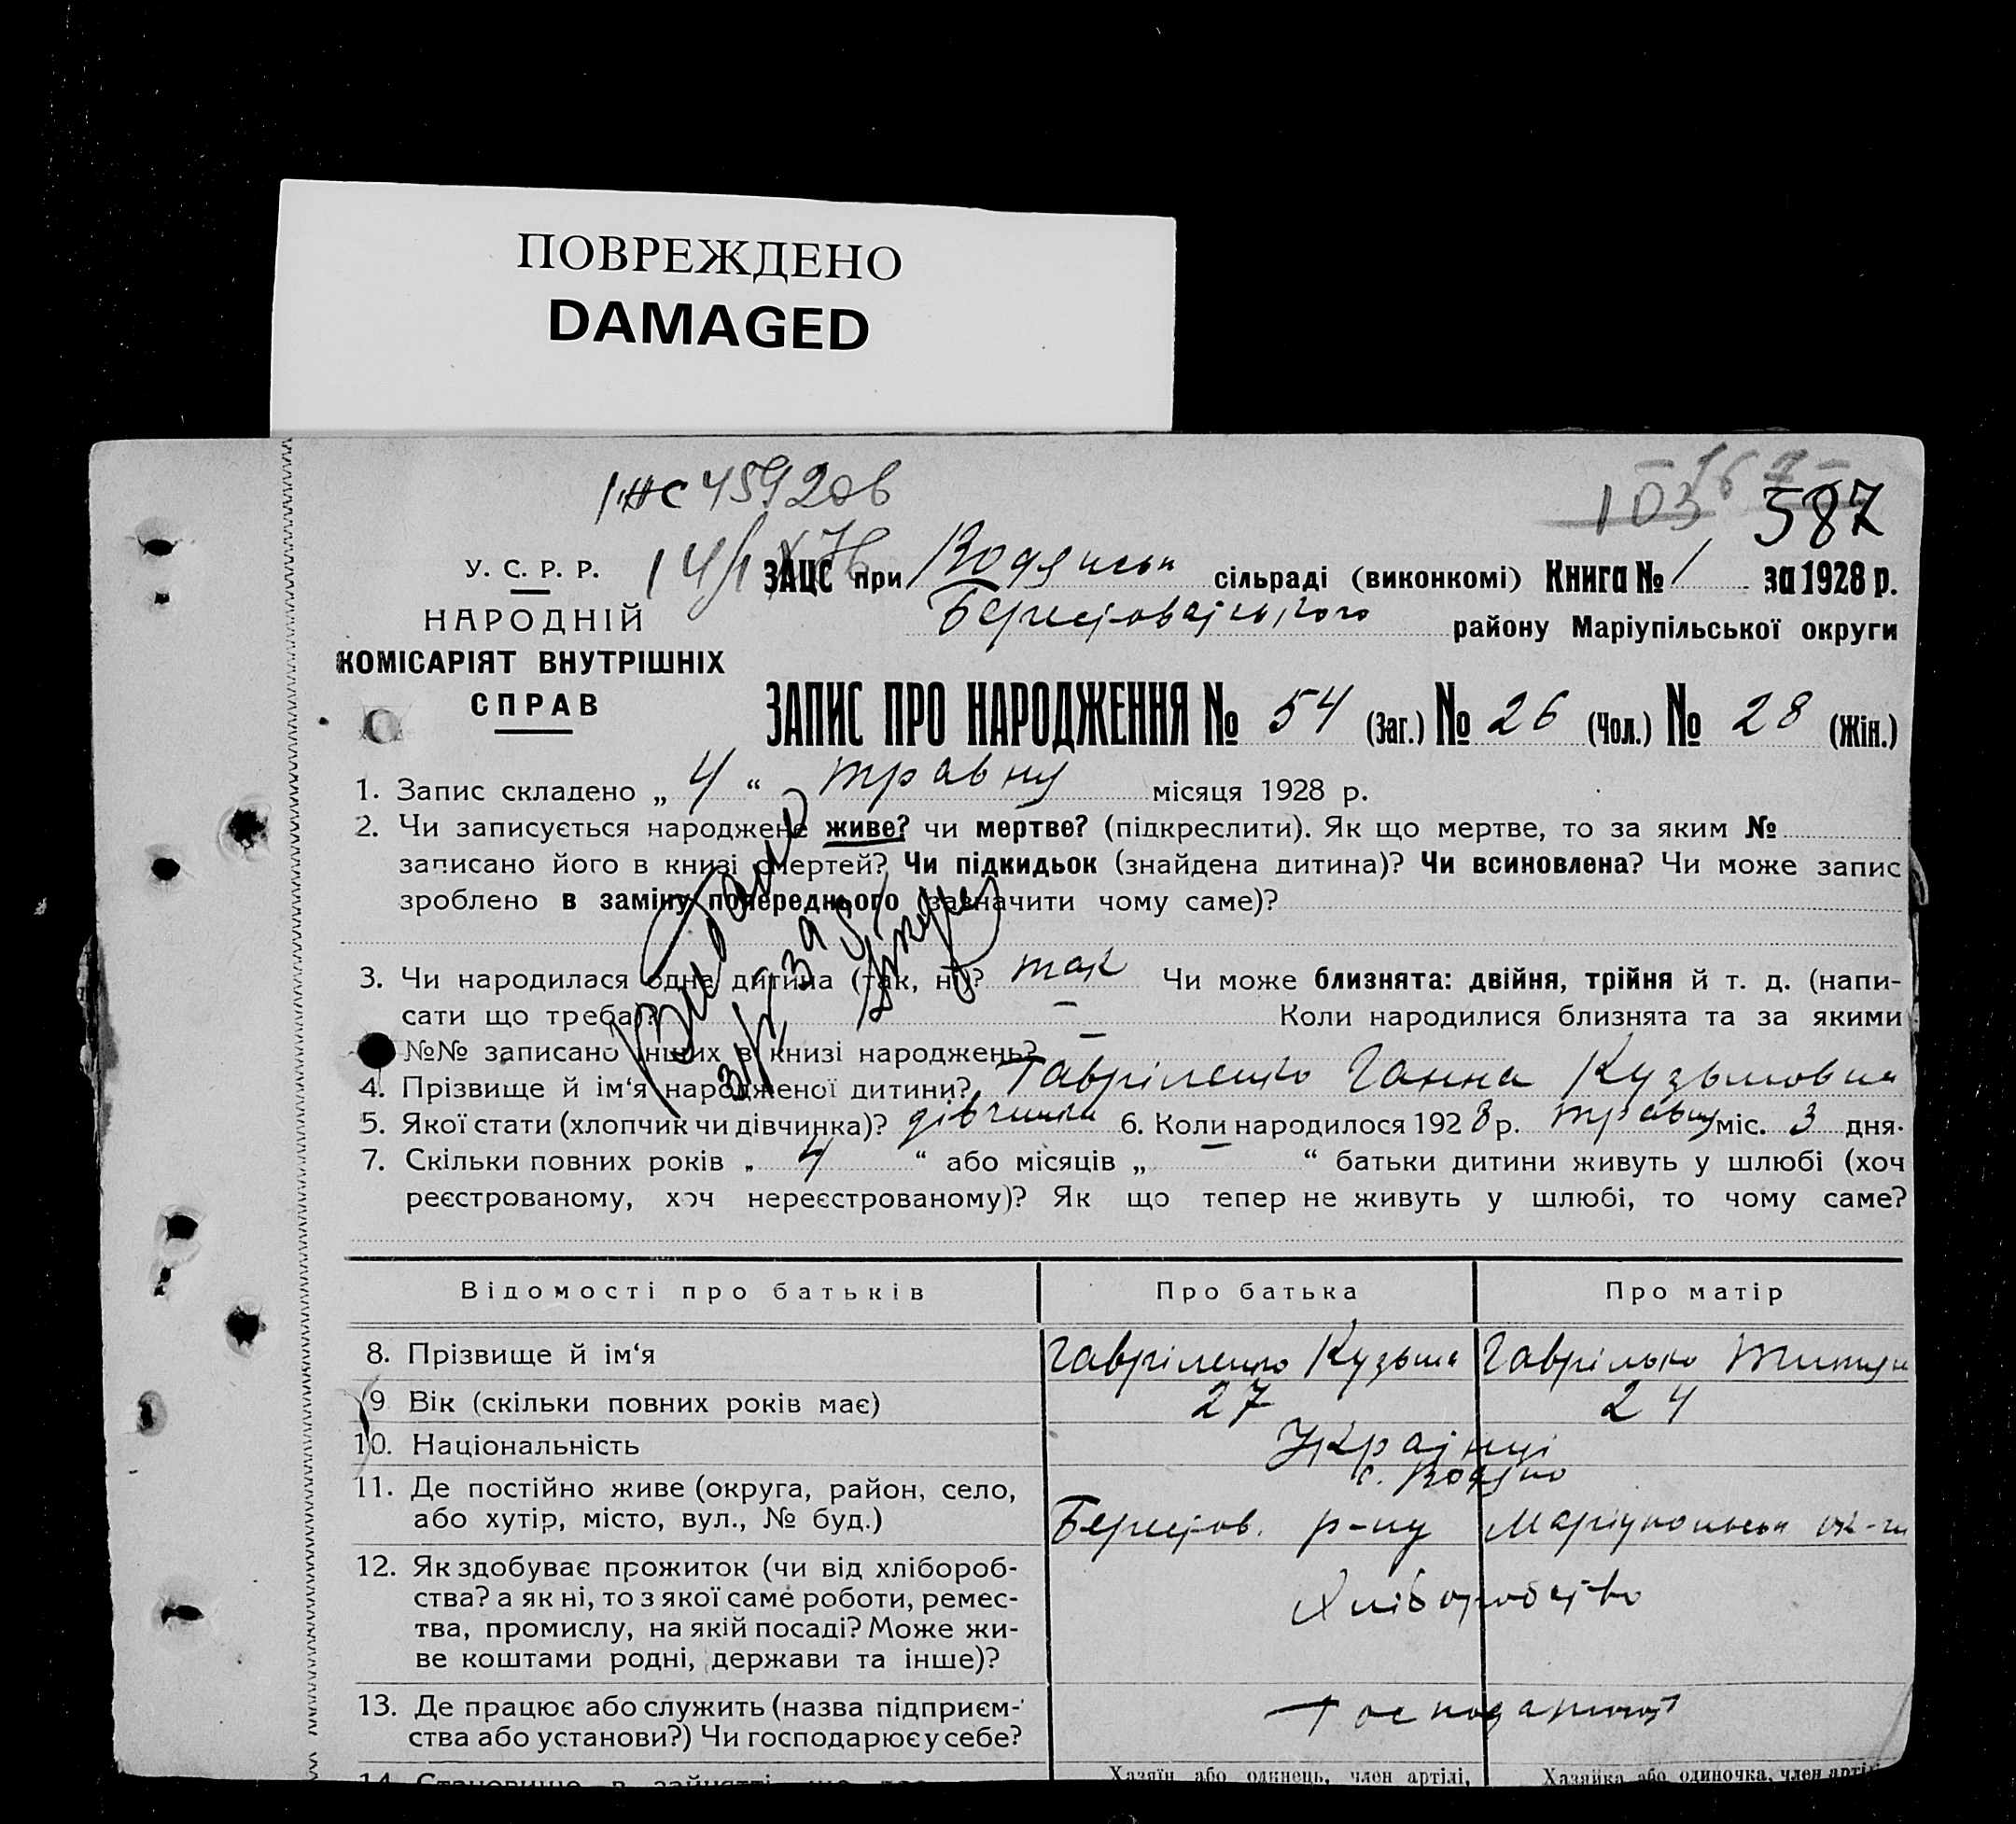 ПОВРЕЖДЕНО
DAMAGED
587
У. С. Р. Р.
НАРОДНІЙ
КОМІСАРІЯТ ВНУТРІШНІХ
СПРАВ
ЗАЦС при сільраді (виконкомі) Книга № 1 за 1928 р.
району Маріупільської округи
ЗАПИС ПРО НАРОДЖЕННЯ № 54 (Заг.) № 26 (Чол.) № 28 (Жін.)
1. Запис складено „ 4 “ травня місяця 1928 р.
2. Чи записується народжене живе? чи мертве? (підкреслити). Як що мертве, то за яким №
записано його в книзі смертей? Чи підкидьок (знайдена дитина)? Чи всиновлена? Чи може запис
зроблено в заміну попереднього (зазначити чому саме)?
3. Чи народилася одна дитина (так, ні)? так Чи може близнята: двійня, трійня й т. д. (напи-
сати що треба)? — Коли народилися близнята та за якими
№№ записано інших в книзі народжень? —
4. Прізвище й ім‘я народженої дитини? Гавріленко Ганна Кузьмовна
5. Якої стати (хлопчик чи дівчинка)? дівчинка 6. Коли народилося 1928 р. травня міс. 3 дня.
7. Скільки повних років „ 4 “ або місяців „ — “ батьки дитини живуть у шлюбі (хоч
реєстрованому, хоч нереєстрованому)? Як що тепер не живуть у шлюбі, то чому саме?
Відомості про батьків Про батька Про матір
8. Прізвище й ім‘я Гавріленко Кузьма
9. Вік (скільки повних років має) 27 24
10. Національність Українці
11. Де постійно живе (округа, район, село,
або хутір, місто, вул., № буд.)
с. Водяно
Берестов. р-ну
12. Як здобуває прожиток (чи від хлібороб-
ства? а як ні, то з якої саме роботи, ремес-
тва, промислу, на якій посаді? Може жи-
ве коштами родні, держави та інше)?
Хліборобство
13. Де працює або служить (назва підприєм-
ства або установи?) Чи господарює у себе?
Хазяїн або одинець, член артілі,
Хазяйка або одиночка, член артілі